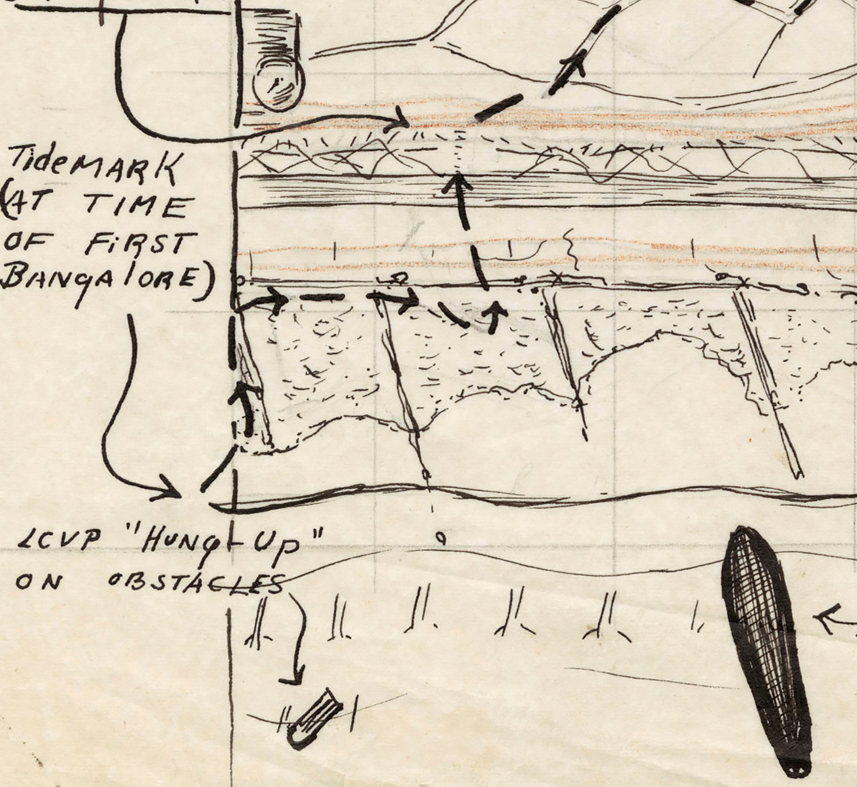 TideMARK
(AT TIME
OF FiRST
BANgAlORE)
LCVP "HUNg-Up"
ON OBSTACLES